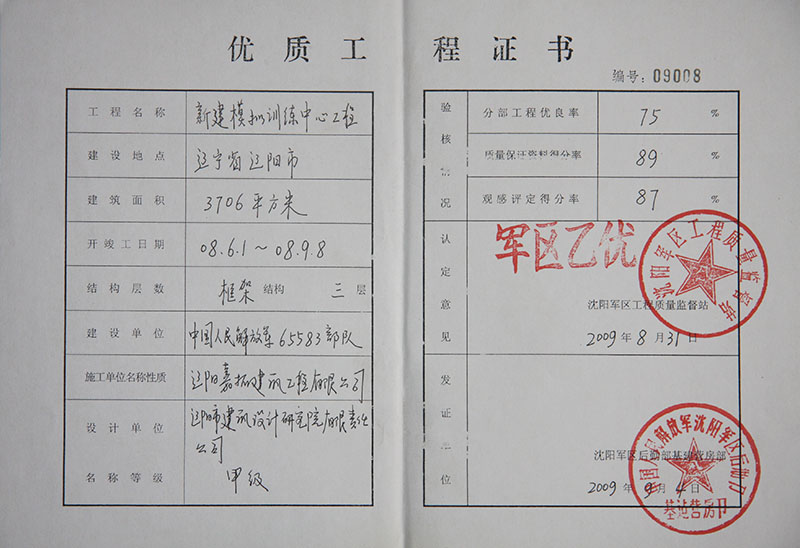 优质工程证书
编号：09008
工程名称 新建模拟训练中心工程
建设地点 辽宁省辽阳市
建筑面积 3706平方米
开竣工日期 08.6.1～08.9.8
结构层数 框架结构 三层
建设单位 中国人民解放军65583部队
施工单位名称性质 辽阳嘉拓建筑工程有限公司
设计单位 辽阳市建筑设计研究院有限责任
公司
名称等级 甲级
验核情况
分部工程优良率 75 %
质量保证资料得分率 89 %
观感评定得分率 87 %
认定意见
军区乙优
沈阳军区工程质量监督站
沈阳军区工程质量监督站
2009年8月31日
发证单位
沈阳军区后勤部基建营房部
中国人民解放军沈阳军区后勤部
基建营房部
2009年9月4日